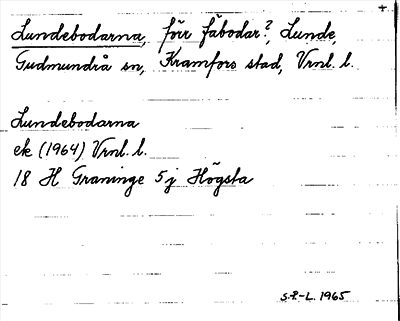 +
Lundebodarna, förr fäbodar?, Lunde,
Gudmundrå sn, Kramfors stad, Vrnl. l.
Lundebodarna
ek (1964) Vrnl. l.
18 H Graninge 5 j Högsta
S.P.-L. 1965